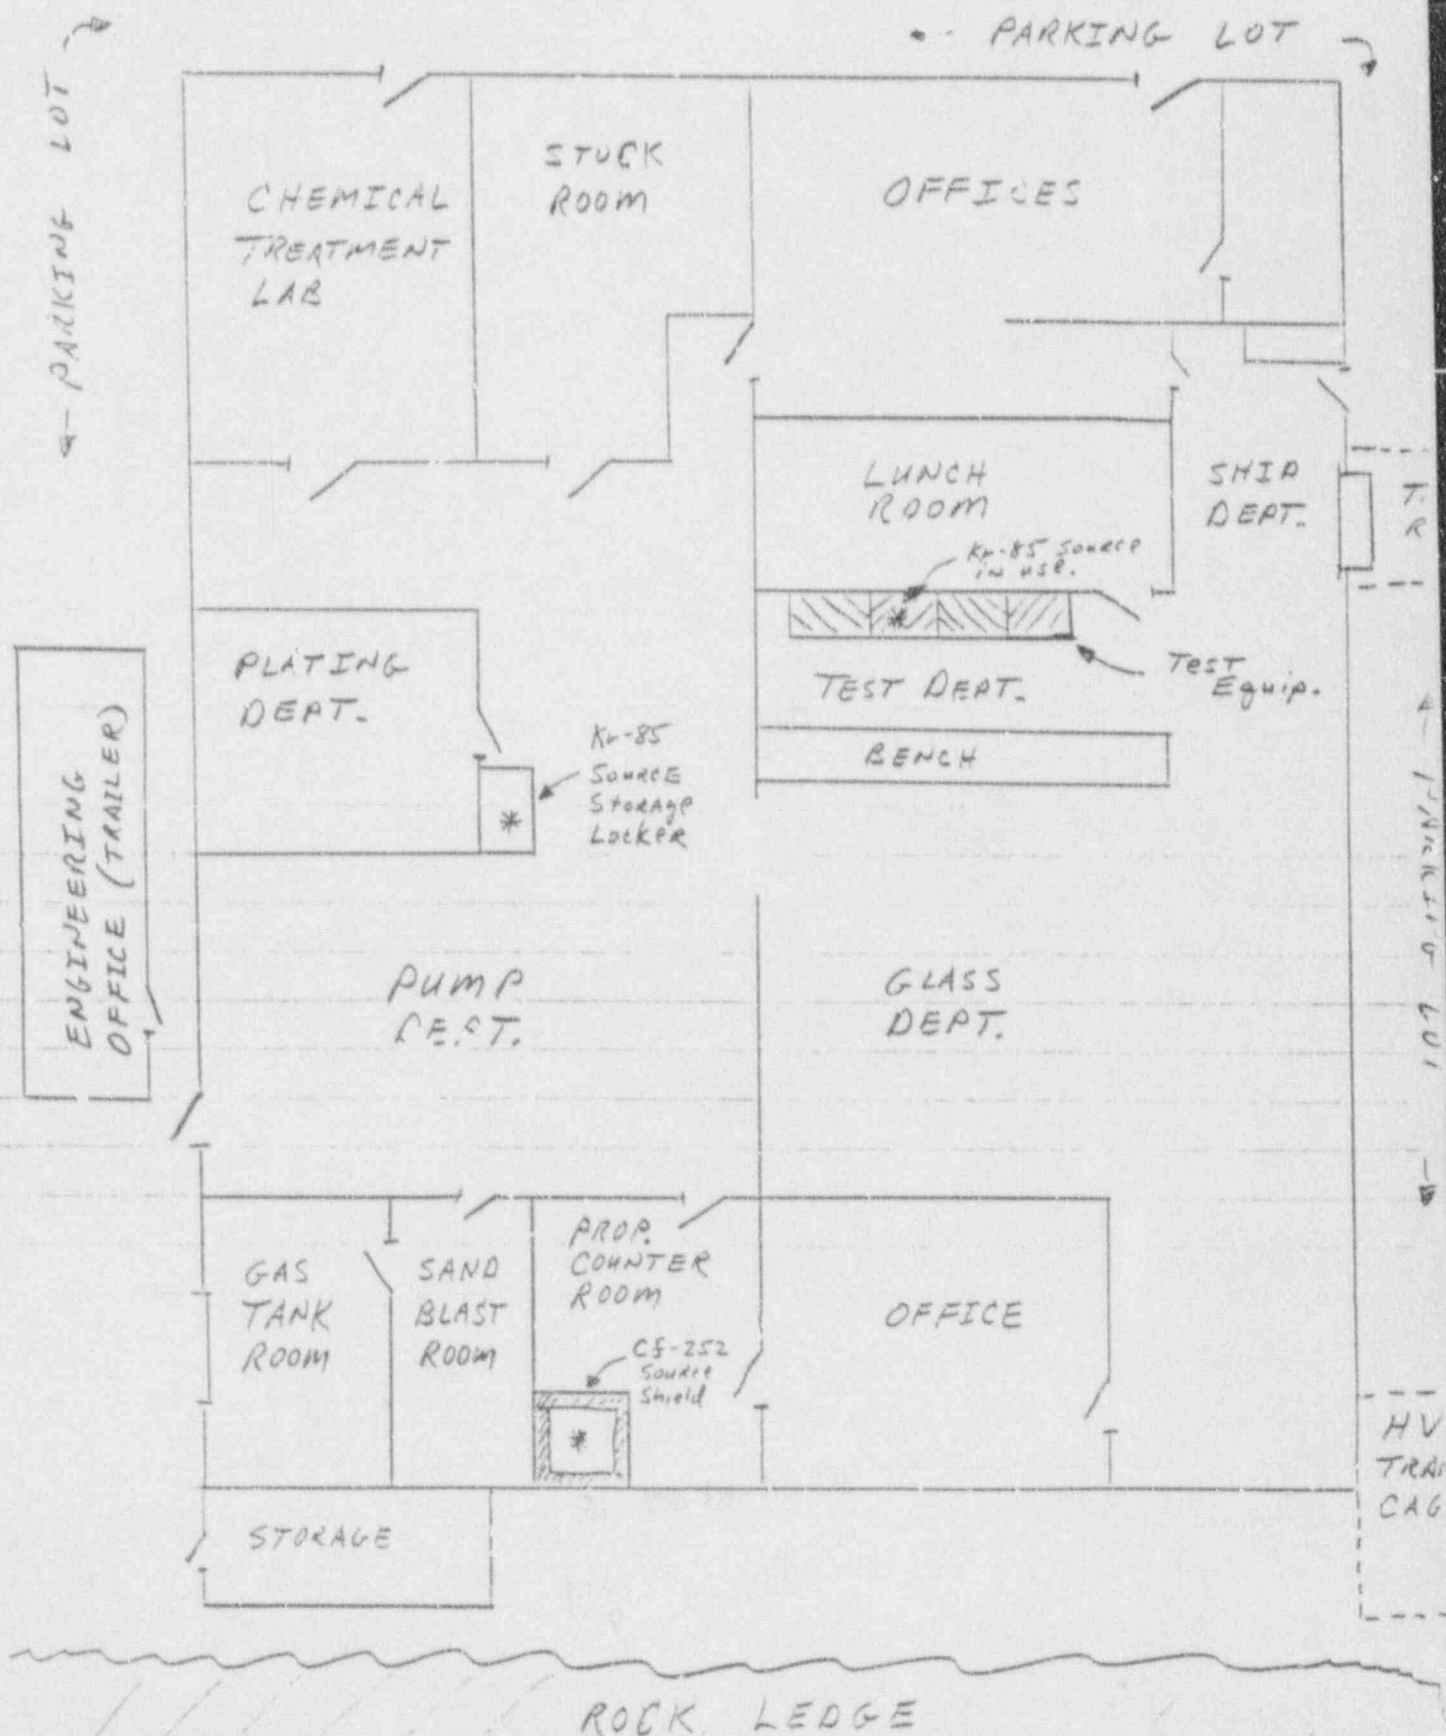 PARKING LOT
← PARKING LOT
CHEMICAL
TREATMENT
LAB
STUCK
ROOM
OFFICES
LUNCH
ROOM
SHIP
DEPT.
T.
R
Kr-85 Source
in use.
Test
Equip.
TEST DEPT.
BENCH
PLATING
DEPT.
Kr-85
Source
Storage
Locker
ENGINEERING
OFFICE (TRAILER)
PUMP
GLASS
DEPT.
GAS
TANK
ROOM
SAND
BLAST
ROOM
PROP.
COUNTER
ROOM
Cf-252
Source
Shield
OFFICE
HV
TRA
CAG
STORAGE
ROCK LEDGE